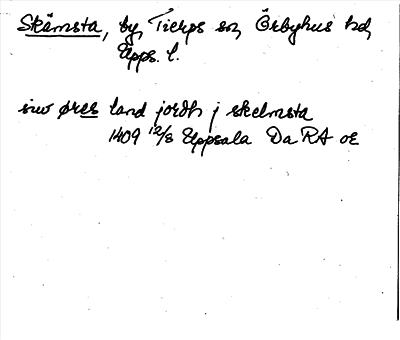 Skämsta, by, Tierps sn, Örbyhus hd,
Upps. l.
siw øres land jordh j skelmsta
1409 12/8 Uppsala Da RA oE